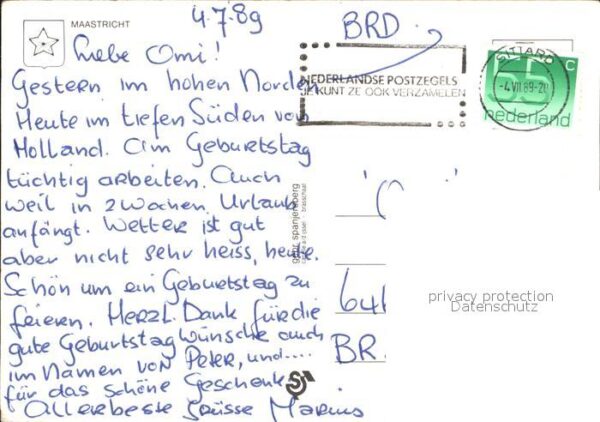 MAASTRICHT
4.7.89
BRD
Liebe Omi!
Gestern im hohen Norden
Heute im tiefen Süden von
Holland. Am Geburtstag
tüchtig arbeiten. Auch
weil in 2 Wochen Urlaub
anfängt. Wetter ist gut
aber nicht sehr heiss, heute.
Schön um ein Geburtstag zu
feiern. Herzl. Dank für die
gute Geburtstagwünsche auch
im Namen von Peter, und....
für das schöne Geschenk
Allerbeste Grüsse Marius
NEDERLANDSE POSTZEGELS
JE KUNT ZE OOK VERZAMELEN
SITTARD
-4.VII.89-20
65 c
nederland
gebr. spanjersberg
641
BR
privacy protection
Datenschutz